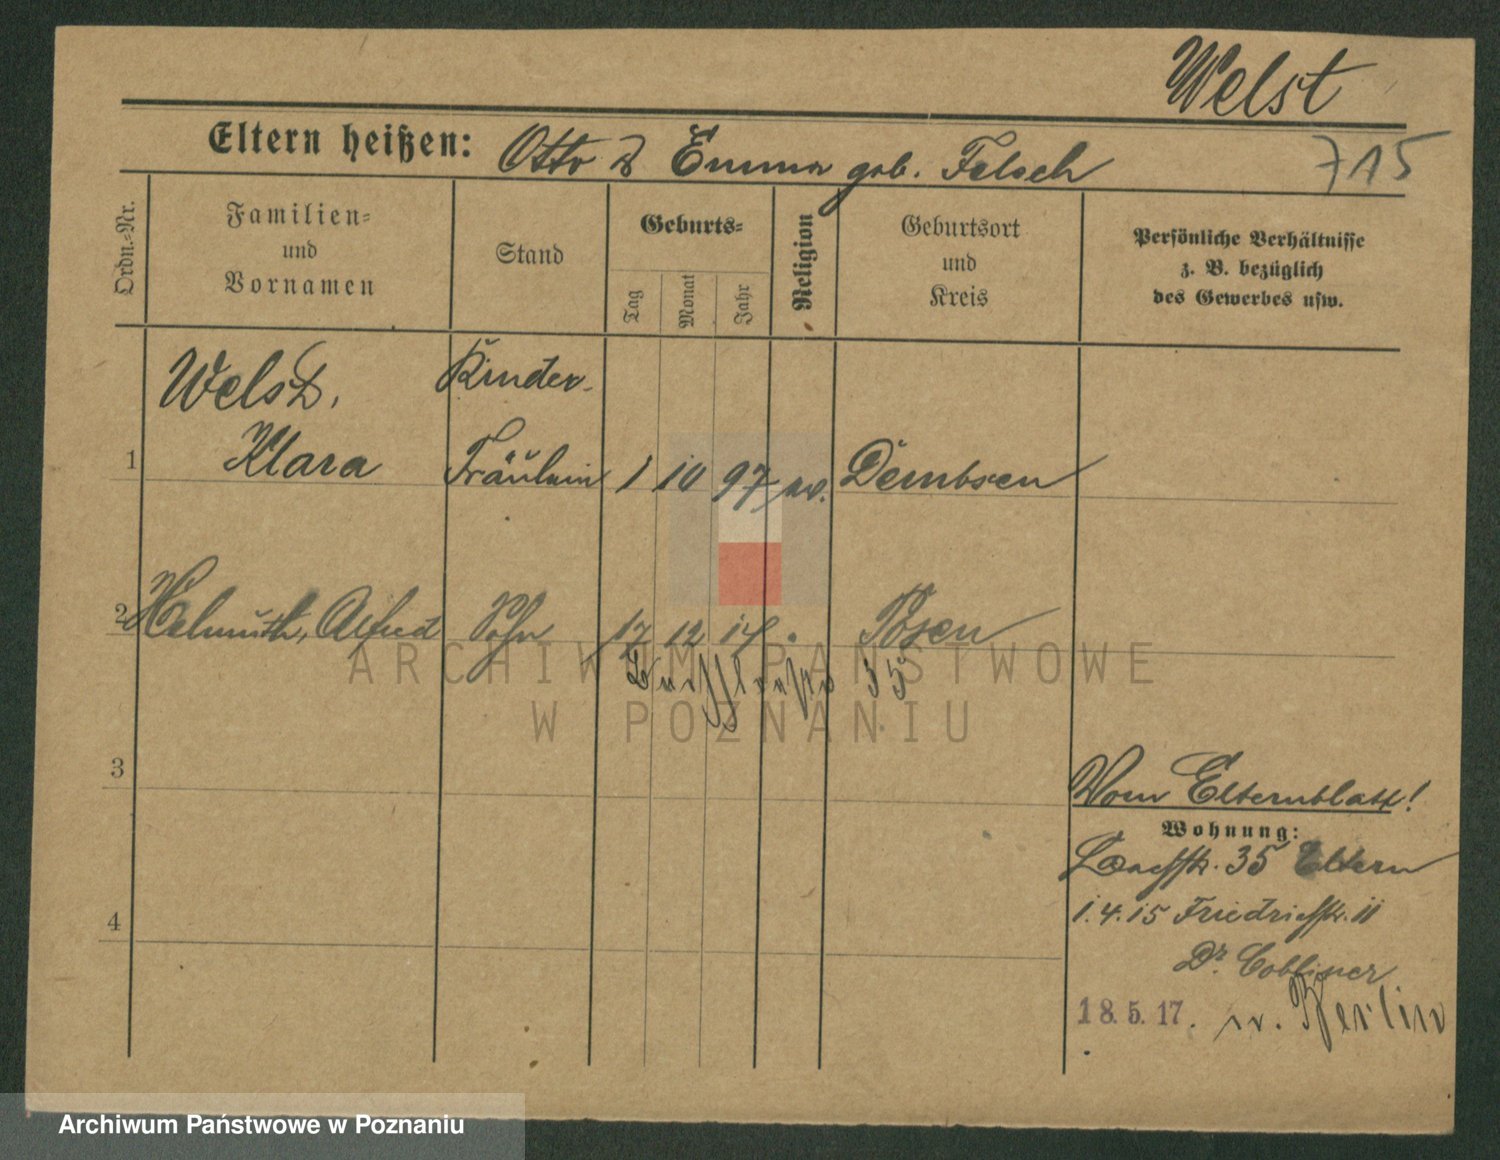 Welst
Eltern heißen: Otto & Emma geb. Felsch
715
Ordn.-Nr.
Familien=
und
Vornamen
Stand
Geburts=
Tag
Monat
Jahr
Religion
Geburtsort
und
Kreis
Persönliche Verhältnisse
z. B. bezüglich
des Gewerbes usw.
Welst,
Kinder-
1 Klara Fräulein 1 10 97 ev. Dembsen
2 Helmuth, Alfred Sohn 17 12 14 Posen
35
ARCHIWUM PAŃSTWOWE
W POZNANIU
3
Vom Elternblatt!
Wohnung:
35 Eltern
4
1.4.15 Friedrichstr. 11
Dr. Cobliner
18.5.17. n. Berlin
Archiwum Państwowe w Poznaniu